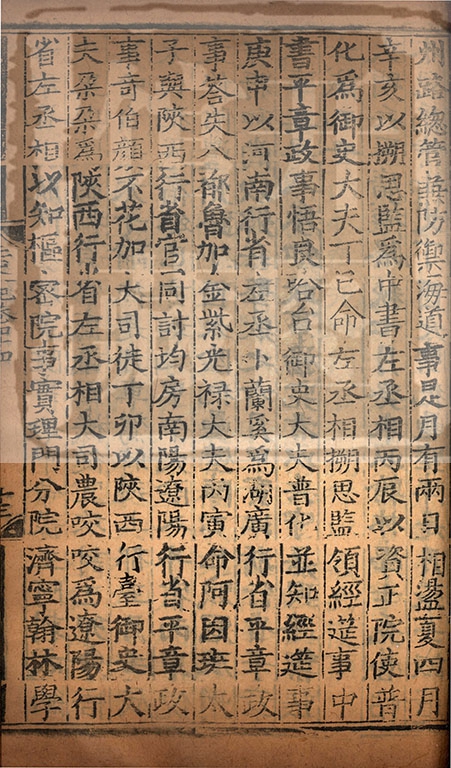 州路總管兼防禦海道事是月有兩日相盪夏四月
辛亥以搠思監爲中書左丞相丙辰以資正院使普
化爲御史大夫丁巳命左丞相搠思監領經筵事中
書平章政事悟良哈台御史大夫普化並知經筵事
庚申以河南行省左丞卜蘭奚爲湖廣行省平章政
事荅失八都魯加金紫光禄大夫丙寅命阿因班太
子與陝西行省官同討均房南陽遼陽行省平章政
事奇伯顏不花加大司徒丁卯以陝西行臺御史大
夫朶朶爲陝西行省左丞相大司農咬咬爲遼陽行
省左丞相以知樞密院事實理門分院濟寧翰林學
十三